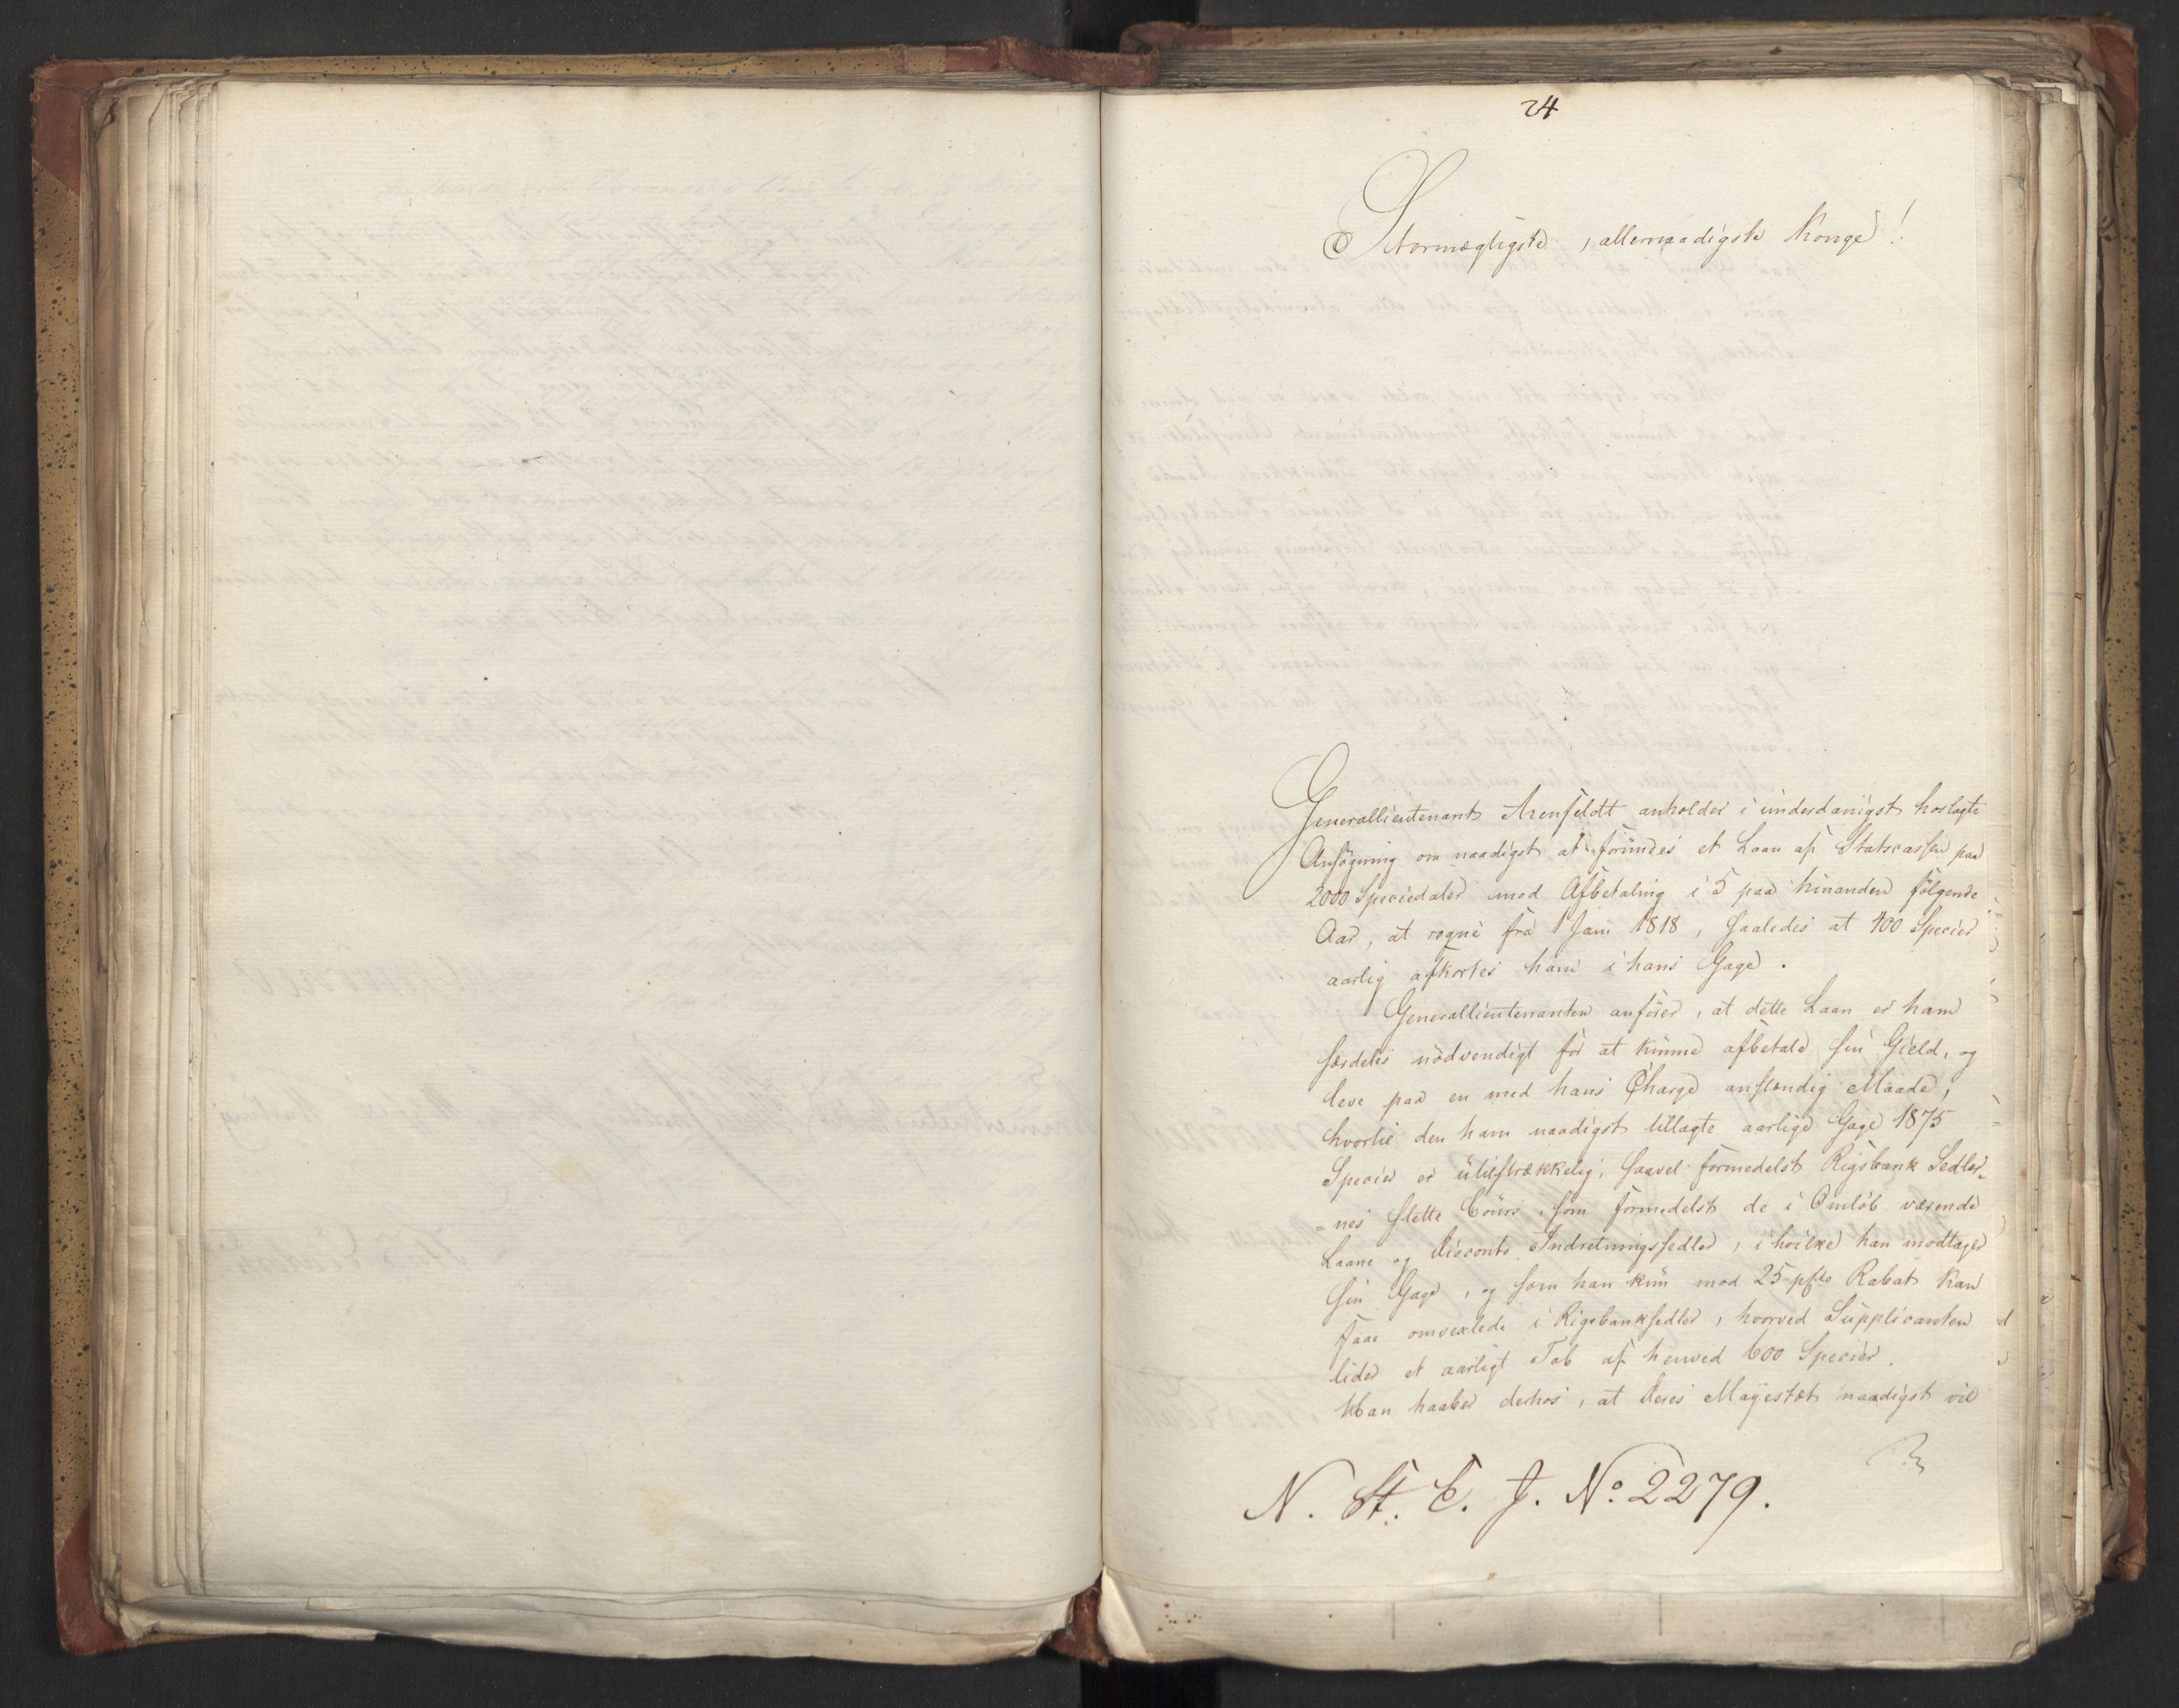 24
Stormægtigste, allernaadigste Konge!
Generallieutenant Arenfeldt anholder i underdanigst hoslagte
Ansøgning om naadigst at forundes et Laan af Statscassen paa
2000 Speciedaler mod Afbetaling i 5 paa hinanden følgende
Aar, at regne fra 1 Janü 1818, saaledes at 400 Specier
aarlig afkortes ham i hans Gage.
Generallieutenanten anfører, at dette Laan er ham
særdeles nødvendigt for at kunne afbetale sin Gield, og
leve paa en med hans Charge anstændig Maade,
hvortil den ham naadigst tillagte aarlige Gage 1875
Specier er utilstrækkelig, saavel formedelst Rigsbank Sedler-
=nes slette Cours, som formedelst de i Omløb værende
Laane og Disconto Indretningssedler, i hvilke han modtager
sin Gage, og som han kun mod 25 pCto Rabat kan
faae omvexlede i Rigsbanksedler, hvorved Supplicanten
lider et aarligt Tab af henved 600 Specier.
Han haaber derhos, at Deres Mayestæt naadigst vil
N. St. C. J. No. 2279.